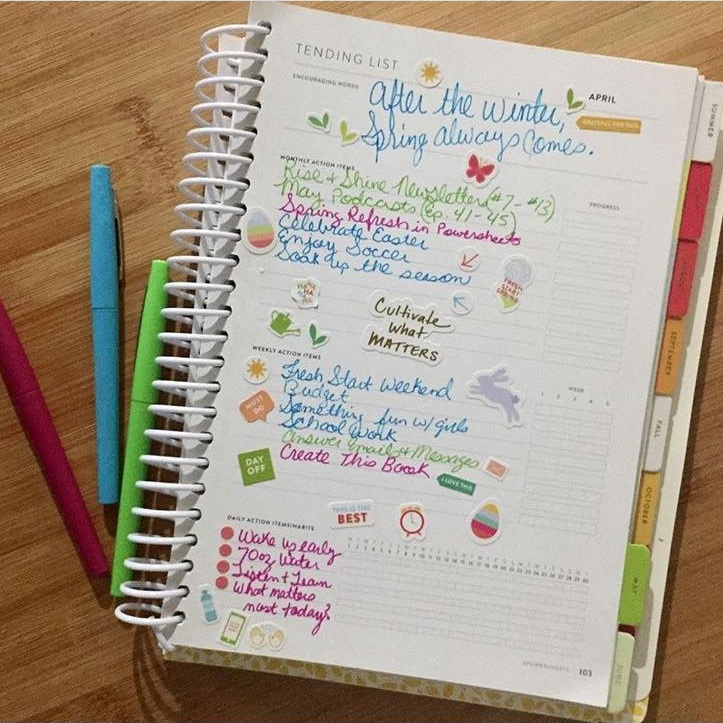 TENDING LIST
ENCOURAGING WORDS
After the winter,
Spring always comes.
APRIL
GRATEFUL FOR THIS
MONTHLY ACTION ITEMS
PROGRESS
Rise + Shine Newsletters (#7 - #13)
May Podcasts (Ep. 41-45)
Spring Refresh in Powersheets
Celebrate Easter
Enjoy Soccer
Soak up the season
FRESH START
Cultivate
what
MATTERS
WEEKLY ACTION ITEMS
WEEK
1 2 3 4 5
Fresh Start Weekend
Budget
Something fun w/ girls
School Work
Answer Emails + Messages
Create This Book
MUST DO
DAY
OFF
I LOVE THIS
THIS IS THE
BEST
DAILY ACTION ITEMS/HABITS
Wake up early
70oz Water
Listen + Learn
What matters
most today?
POWERSHEETS
103
SUMMER
SEPTEMBER
FALL
OCTOBER
MAY
JUNE